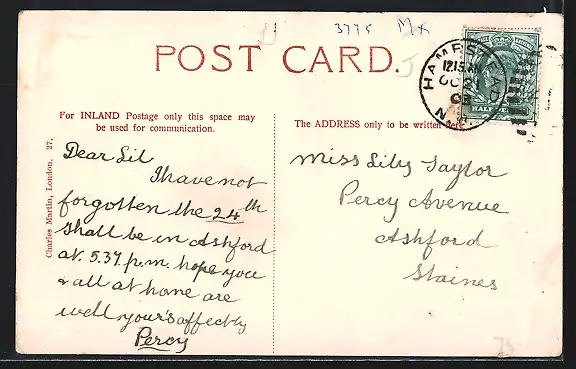 3775 Mx
POST CARD.
J
HAMPSTEAD
12.15 AM
OC 21
N.W.
For INLAND Postage only this space may
be used for communication.
The ADDRESS only to be written here.
Charles Martin, London. 27.
Dear Lil
I have not
forgotten the 24th
shall be in Ashford
at 5.37 p.m. hope you
& all at home are
well yours affectly
Percy
Miss Lily Taylor
Percy Avenue
Ashford
Staines